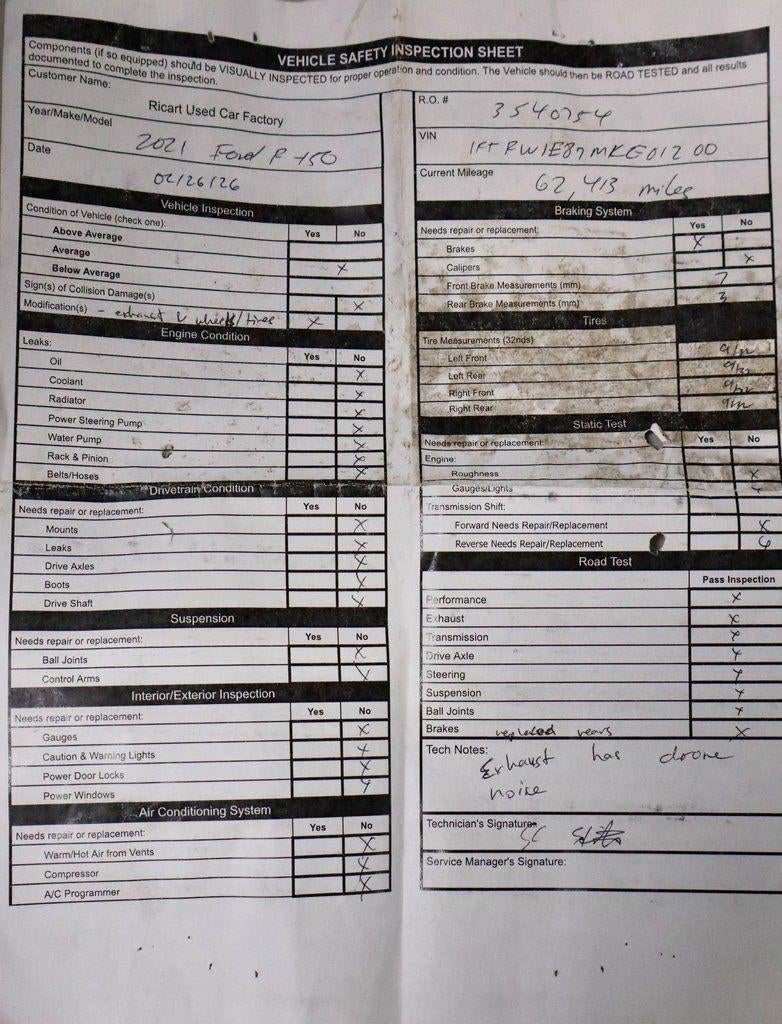 VEHICLE SAFETY INSPECTION SHEET
Components (if so equipped) should be VISUALLY INSPECTED for proper operation and condition. The Vehicle should then be ROAD TESTED and all results
documented to complete the inspection.
Customer Name:
Ricart Used Car Factory
Year/Make/Model
2021 Ford F-150
Date
02/26/26
R.O. #
3540754
VIN
1FTFW1E87MKE01200
Current Mileage
62,413 miles
Vehicle Inspection
Condition of Vehicle (check one): Yes No
Above Average
Average
Below Average X
Sign(s) of Collision Damage(s) X
Modification(s) - exhaust & wheels/tires X
Engine Condition
Leaks: Yes No
Oil X
Coolant X
Radiator X
Power Steering Pump X
Water Pump X
Rack & Pinion X
Belts/Hoses X
Drivetrain Condition
Needs repair or replacement: Yes No
Mounts X
Leaks X
Drive Axles X
Boots X
Drive Shaft X
Suspension
Needs repair or replacement: Yes No
Ball Joints X
Control Arms X
Interior/Exterior Inspection
Needs repair or replacement: Yes No
Gauges X
Caution & Warning Lights X
Power Door Locks X
Power Windows X
Air Conditioning System
Needs repair or replacement: Yes No
Warm/Hot Air from Vents X
Compressor X
A/C Programmer X
Braking System
Needs repair or replacement: Yes No
Brakes X
Calipers X
Front Brake Measurements (mm) 7
Rear Brake Measurements (mm) 3
Tires
Tire Measurements (32nds)
Left Front 9/32
Left Rear 9/32
Right Front 9/32
Right Rear 9/32
Static Test
Needs repair or replacement: Yes No
Engine:
Roughness X
Gauges/Lights X
Transmission Shift:
Forward Needs Repair/Replacement X
Reverse Needs Repair/Replacement X
Road Test
Pass Inspection
Performance X
Exhaust X
Transmission X
Drive Axle X
Steering X
Suspension X
Ball Joints X
Brakes replaced rears X
Tech Notes:
Exhaust has drone
noise
Technician's Signature:
Service Manager's Signature: